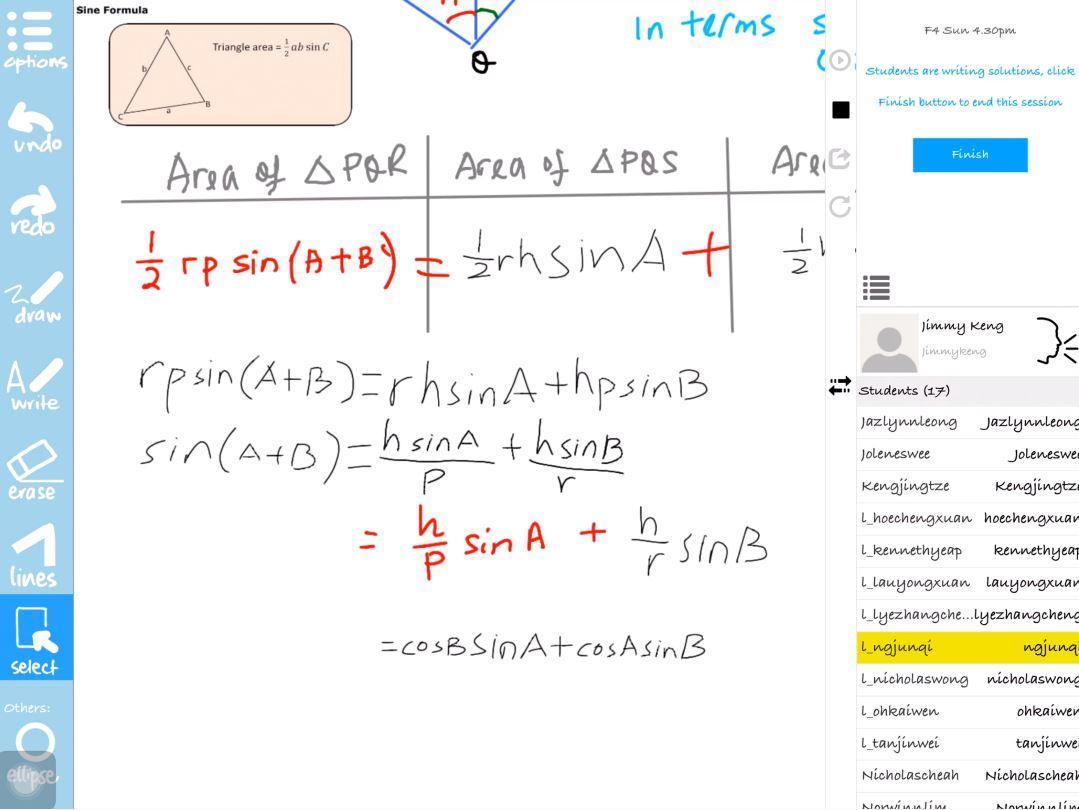 Sine Formula
Triangle area = 1/2 ab sin C
A
b c
C a B
A
Q
In terms
Area of △PQR Area of △PQS Area
1/2 rp sin(A+B) = 1/2 rh sin A + 1/2
rp sin(A+B) = rh sin A + hp sin B
sin(A+B) = h sin A / p + h sin B / r
= h/p sin A + h/r sin B
= cosB sin A + cosA sin B
options
undo
redo
draw
A write
erase
lines
select
Others:
ellipse
F4 Sun 4.30pm
Students are writing solutions, click
Finish button to end this session
Finish
Jimmy Keng
Jimmykeng
Students (17)
Jazlynnleong Jazlynnleong
Joleneswee Joleneswe
Kengjingtze Kengjingtz
l_hoechengxuan hoechengxuan
l_kennethyeap kennethyeap
l_lauyongxuan lauyongxuan
l_lyezhangche...lyezhangcheng
l_ngjunqi ngjunq
l_nicholaswong nicholaswong
l_ohkaiwen ohkaiwen
l_tanjinwei tanjinwei
Nicholascheah Nicholascheah